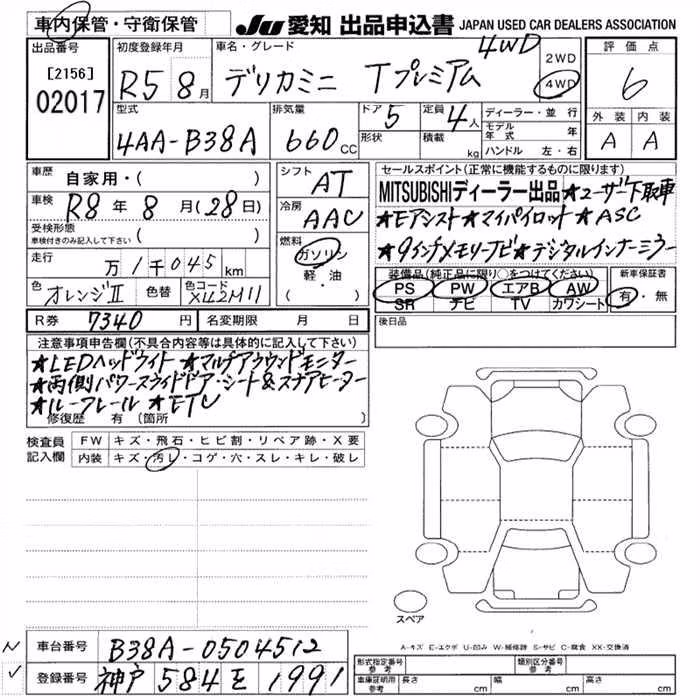 車内保管・守衛保管 JU 愛知 出品申込書 JAPAN USED CAR DEALERS ASSOCIATION
出品番号 [2156] 02017
初度登録年月 R5 8月
車名・グレード デリカミニ Tプレミアム 4WD
2WD
4WD
評価点 6
外装 内装
A A
型式 4AA-B38A
排気量 660 CC
ドア 5 定員 4人
形状 積載 kg
ディーラー・並行
モデル年式 年
ハンドル 左・右
車歴 自家用・( )
車検 R8年8月(28日)
受検形態 車検付きのみ記入して下さい ( )
走行 万1千045km
色 オレンジII 色替 色コード XU2M11
シフト AT
冷房 AAC
燃料 ガソリン
軽・油
( )
セールスポイント(正常に機能するものに限ります)
MITSUBISHIディーラー出品★ユーザー下取車
★Eアシスト★マイパイロット★ASC
★9インチメモリーナビ★デジタルインナーミラー
装備品(純正品に限り○をつけてください)
PS PW エアB AW
SR ナビ TV カワシート
新車保証書
有・無
R券 7340円 名変期限 月 日
後日品
注意事項申告欄(不具合内容等は具体的に記入して下さい)
★LEDヘッドライト★マルチアラウンドモニター
★両側パワースライドドア・シート&ステアヒーター
★ルーフレール★ETC
修復歴 有 (箇所 )
検査員記入欄 FW キズ・飛石・ヒビ割・リペア跡・X要
内装 キズ・汚レ・コゲ・穴・スレ・キレ・破レ
スペア
A-キズ E-エクボ U-凹み W-補修跡 S-サビ C-腐食 XX-交換済
車台番号 B38A-0504512
登録番号 神戸 584 を 1991
形式指定番号 参考 類別区分番号 参考
車庫証明用 参考 長さ cm 幅 cm 高さ cm